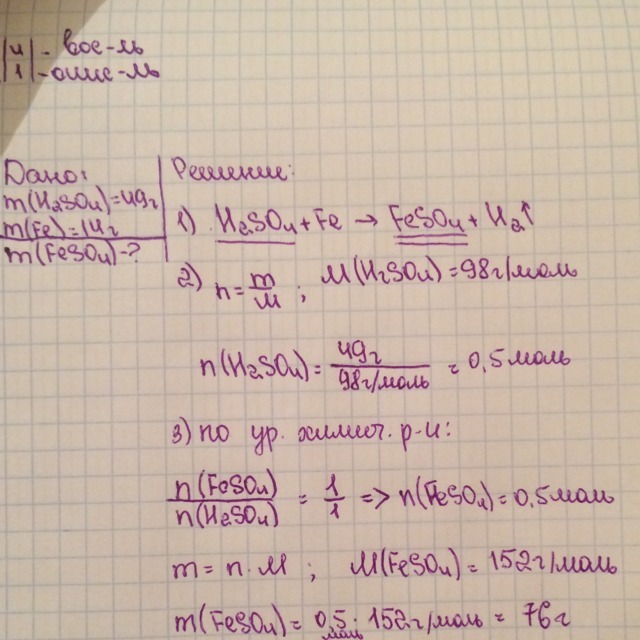 |4| - вос-ль
|1| - окис-ль
Дано:
m(H₂SO₄)=49г
m(Fe)=14г
m(FeSO₄)-?
Решение:
1) H₂SO₄ + Fe → FeSO₄ + H₂↑
2) n = m/M ; M(H₂SO₄) = 98г/моль
n(H₂SO₄) = 49г / 98г/моль = 0,5моль
3) по ур. химич. р-и:
n(FeSO₄) / n(H₂SO₄) = 1/1 => n(FeSO₄) = 0,5моль
m = n · M ; M(FeSO₄) = 152г/моль
m(FeSO₄) = 0,5 моль · 152г/моль = 76г